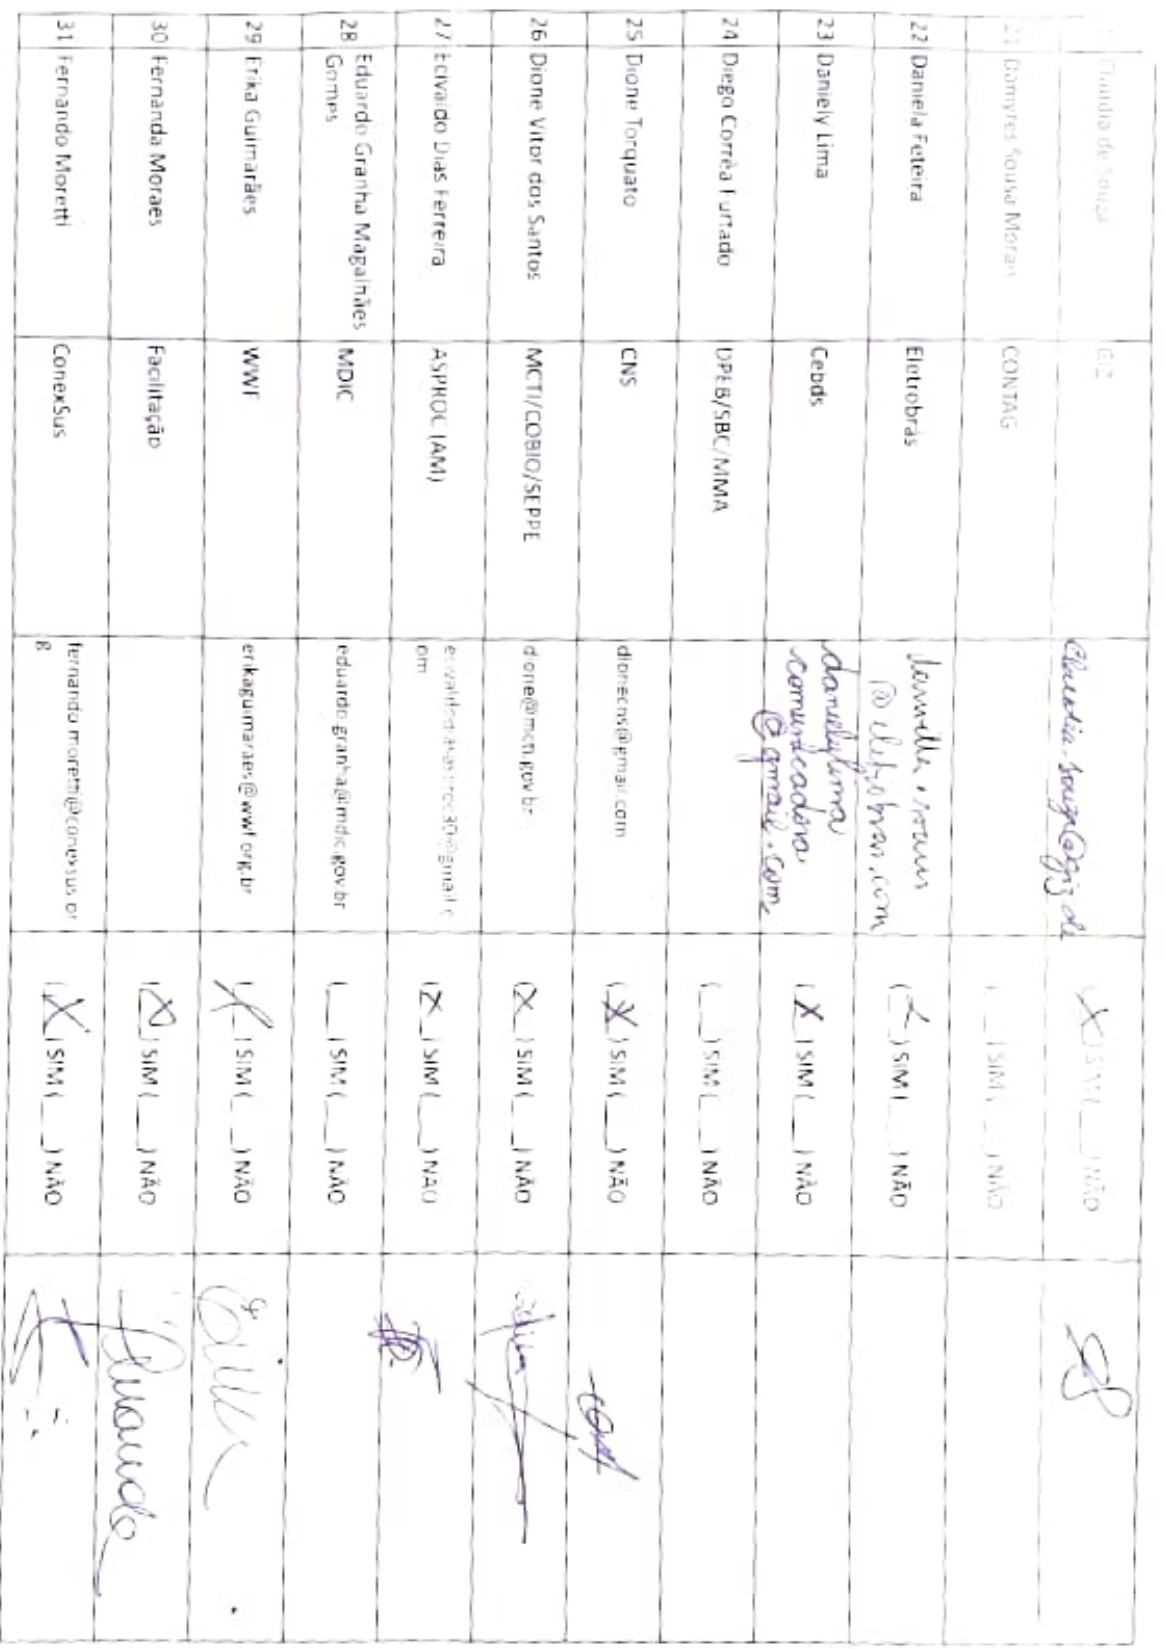 Claudia de Souza GIZ Claudia.souza@giz.de X ) SIM ( __ ) NÃO
21 Damyres Sousa Morais CONTAG ( __ ) SIM ( __ ) NÃO
22 Daniela Feteira Eletrobrás @eletrobras.com ( X ) SIM ( __ ) NÃO
23 Daniely Lima Cebds danielylima
comunicadora
@gmail.com ( X ) SIM ( __ ) NÃO
24 Diego Corrêa Furtado DPEB/SBC/MMA ( __ ) SIM ( __ ) NÃO
25 Dione Torquato CNS dionecns@gmail.com ( X ) SIM ( __ ) NÃO
26 Dione Vitor dos Santos MCTI/COBIO/SEPPE dione@mcti.gov.br ( X ) SIM ( __ ) NÃO
27 Ecivaldo Dias Ferreira ASPROC (AM) ( X ) SIM ( __ ) NÃO
28 Eduardo Granha Magalhães
Gomes MDIC eduardo.granha@mdic.gov.br ( __ ) SIM ( __ ) NÃO
29 Erika Guimarães WWF erikaguimaraes@wwf.org.br ( X ) SIM ( __ ) NÃO
30 Fernanda Moraes Facilitação ( X ) SIM ( __ ) NÃO Fernanda
31 Fernando Moretti ConexSus fernando.moretti@conexsus.or
g ( X ) SIM ( __ ) NÃO